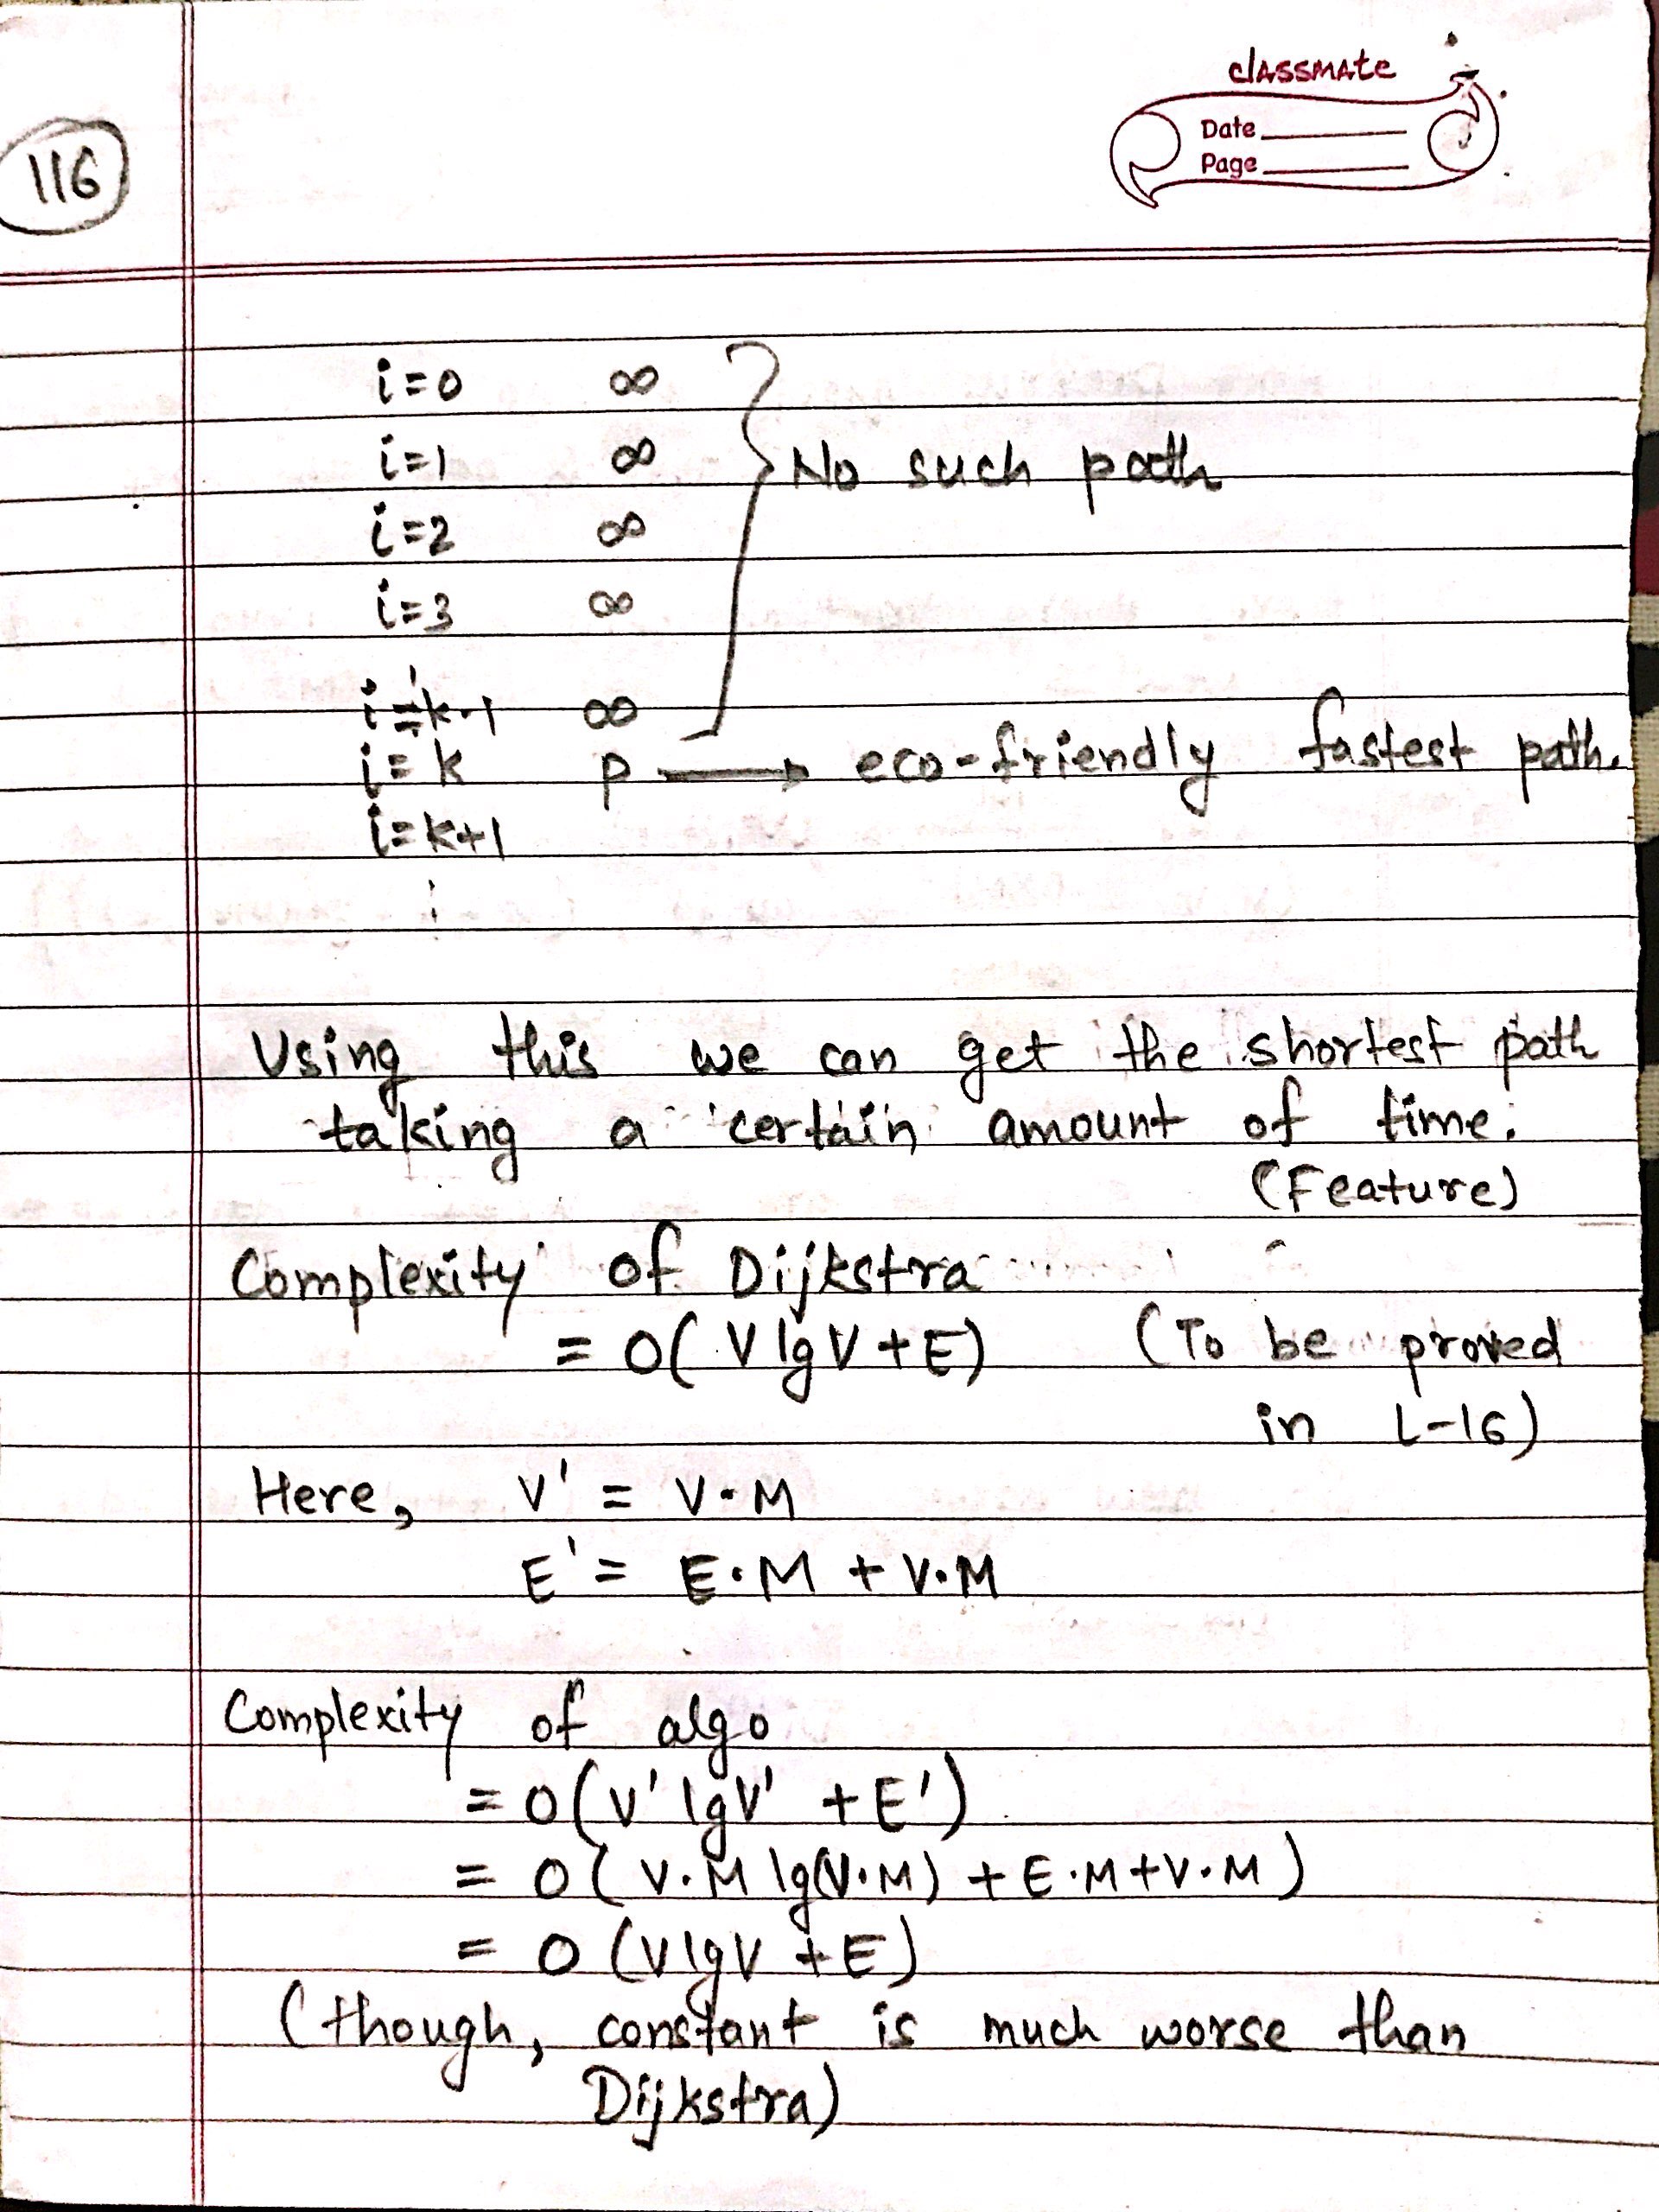 classmate
Date
Page
116
i=0 ∞
i=1 ∞
No such path
i=2 ∞
i=3 ∞
i=k-1 ∞
i=k p → eco-friendly fastest path.
i=k+1
⋮
Using this we can get the shortest path
taking a certain amount of time.
(Feature)
Complexity of Dijkstra
= O(V lg V + E) (To be proved
in L-16)
Here, V' = V·M
E' = E·M + V·M
Complexity of algo
= O(V' lg V' + E')
= O(V·M lg(V·M) + E·M + V·M)
= O(V lg V + E)
(though, constant is much worse than
Dijkstra)